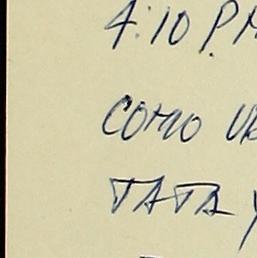 4:10 P
COMO
TATA Y